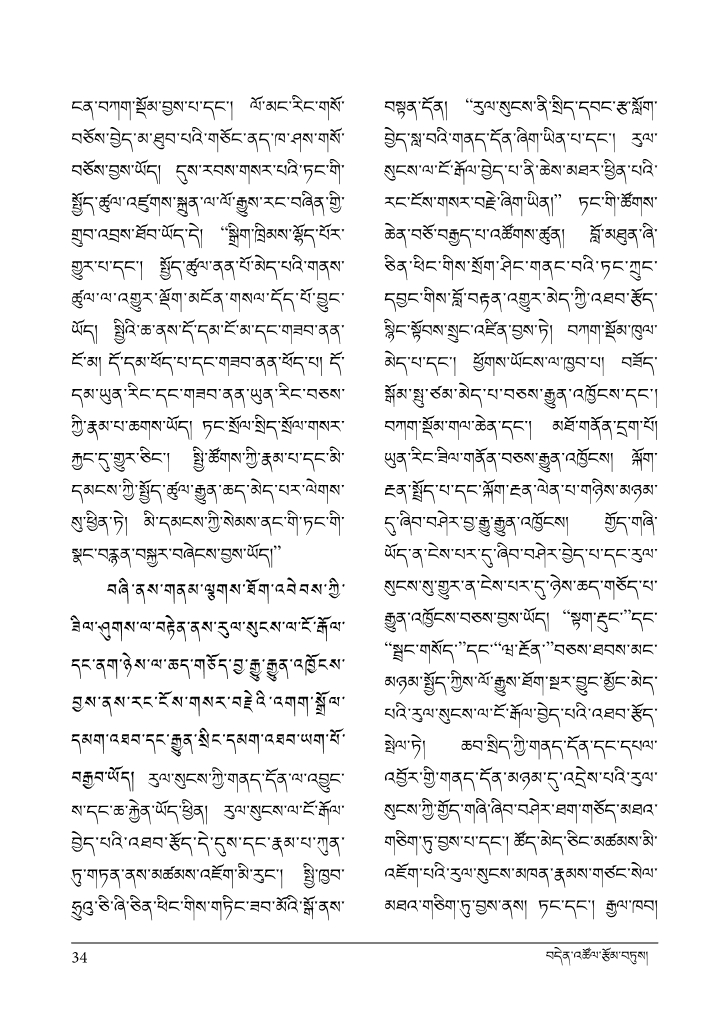 ངན་བཀག་སྡོམ་བྱས་པ་དང་།  ལོ་མང་རིང་གསོ་
བཅོས་བྱེད་མ་ཐུབ་པའི་གཅོང་ནད་ཁ་ཤས་གསོ་
བཅོས་བྱས་ཡོད།  དུས་རབས་གསར་པའི་ཏང་གི་
སྤྱོད་ཚུལ་འཛུགས་སྐྲུན་ལ་ལོ་རྒྱུས་རང་བཞིན་གྱི་
གྲུབ་འབྲས་ཐོབ་ཡོད་དེ།  “སྒྲིག་ཁྲིམས་ལྷོད་པོར་
གྱུར་པ་དང་།  སྤྱོད་ཚུལ་ནན་པོ་མེད་པའི་གནས་
ཚུལ་ལ་འགྱུར་ལྡོག་མངོན་གསལ་དོད་པོ་བྱུང་
ཡོད།  སྤྱིའི་ཆ་ནས་དོ་དམ་ངོ་མ་དང་གཟབ་ནན་
ངོ་མ། དོ་དམ་ཕོད་པ་དང་གཟབ་ནན་ཕོད་པ། དོ་
དམ་ཡུན་རིང་དང་གཟབ་ནན་ཡུན་རིང་བཅས་
ཀྱི་རྣམ་པ་ཆགས་ཡོད།  ཏང་སྲོལ་སྲིད་སྲོལ་གསར་
རྐྱང་དུ་གྱུར་ཅིང་།  སྤྱི་ཚོགས་ཀྱི་རྣམ་པ་དང་མི་
དམངས་ཀྱི་སྤྱོད་ཚུལ་རྒྱུན་ཆད་མེད་པར་ལེགས་
སུ་ཕྱིན་ཏེ།  མི་དམངས་ཀྱི་སེམས་ནང་གི་ཏང་གི་
སྣང་བརྙན་བསྐྱར་བཞེངས་བྱས་ཡོད།”
བཞི་ནས་གནམ་ལྕགས་ཐོག་འབེབས་ཀྱི་
ཟིལ་ཤུགས་ལ་བརྟེན་ནས་རུལ་སུངས་ལ་ངོ་རྒོལ་
དང་ནག་ཉེས་ལ་ཆད་གཅོད་བྱ་རྒྱུ་རྒྱུན་འཁྱོངས་
བྱས་ནས་རང་ངོས་གསར་བརྗེའི་འགག་སྒྲོལ་
དམག་འཐབ་དང་རྒྱུན་སྲིང་དམག་འཐབ་ཡག་པོ་
བརྒྱབ་ཡོད།  རུལ་སུངས་ཀྱི་གནད་དོན་ལ་འབྱུང་
ས་དང་ཆ་རྐྱེན་ཡོད་ཕྱིན།  རུལ་སུངས་ལ་ངོ་རྒོལ་
བྱེད་པའི་འཐབ་རྩོད་དེ་དུས་དང་རྣམ་པ་ཀུན་
ཏུ་གཏན་ནས་མཚམས་འཇོག་མི་རུང་།  སྤྱི་ཁྱབ་
ཧྲུའུ་ཅི་ཞི་ཅིན་ཕིང་གིས་གཏིང་ཟབ་མོའི་སྒོ་ནས་
བསྟན་དོན།  “རུལ་སུངས་ནི་སྲིད་དབང་རྩ་སློག་
བྱེད་སླ་བའི་གནད་དོན་ཞིག་ཡིན་པ་དང་།  རུལ་
སུངས་ལ་ངོ་རྒོལ་བྱེད་པ་ནི་ཆེས་མཐར་ཕྱིན་པའི་
རང་ངོས་གསར་བརྗེ་ཞིག་ཡིན།”  ཏང་གི་ཚོགས་
ཆེན་བཅོ་བརྒྱད་པ་འཚོགས་ཚུན།  བློ་མཐུན་ཞི་
ཅིན་ཕིང་གིས་སྲོག་ཤིང་གནང་བའི་ཏང་ཀྲུང་
དབྱང་གིས་བློ་བརྟན་འགྱུར་མེད་ཀྱི་འཐབ་རྩོད་
སྙིང་སྟོབས་སྲུང་འཛིན་བྱས་ཏེ།  བཀག་སྡོམ་ཁུལ་
མེད་པ་དང་།  ཕྱོགས་ཡོངས་ལ་ཁྱབ་པ།  བཟོད་
སྒོམ་སྤུ་ཙམ་མེད་པ་བཅས་རྒྱུན་འཁྱོངས་དང་།
བཀག་སྡོམ་གལ་ཆེན་དང་།  མཐོ་གནོན་དྲག་པོ།
ཡུན་རིང་ཟིལ་གནོན་བཅས་རྒྱུན་འཁྱོངས།  ལྐོག་
རྔན་སྤྲོད་པ་དང་ལྐོག་རྔན་ལེན་པ་གཉིས་མཉམ་
དུ་ཞིབ་བཤེར་བྱ་རྒྱུ་རྒྱུན་འཁྱོངས།  གྱོད་གཞི་
ཡོད་ན་ངེས་པར་དུ་ཞིབ་བཤེར་བྱེད་པ་དང་རུལ་
སུངས་སུ་གྱུར་ན་ངེས་པར་དུ་ཉེས་ཆད་གཅོད་པ་
རྒྱུན་འཁྱོངས་བཅས་བྱས་ཡོད།  “སྟག་རྡུང་”དང་
“སྦྲང་གསོད་”དང་“ཝ་རྔོན་”བཅས་ཐབས་མང་
མཉམ་སྤྱོད་ཀྱིས་ལོ་རྒྱུས་ཐོག་སྔར་བྱུང་མྱོང་མེད་
པའི་རུལ་སུངས་ལ་ངོ་རྒོལ་བྱེད་པའི་འཐབ་རྩོད་
སྤེལ་ཏེ།  ཆབ་སྲིད་ཀྱི་གནད་དོན་དང་དཔལ་
འབྱོར་གྱི་གནད་དོན་མཉམ་དུ་འདྲེས་པའི་རུལ་
སུངས་ཀྱི་གྱོད་གཞི་ཞིབ་བཤེར་ཐག་གཅོད་མཐའ་
གཅིག་ཏུ་བྱས་པ་དང་། ཚོད་མེད་ཅིང་མཚམས་མི་
འཇོག་པའི་རུལ་སུངས་མཁན་རྣམས་གཙང་སེལ་
མཐའ་གཅིག་ཏུ་བྱས་ནས།  ཏང་དང་།  རྒྱལ་ཁབ།
34
བདེན་འཚོལ་རྩོམ་བཏུས།